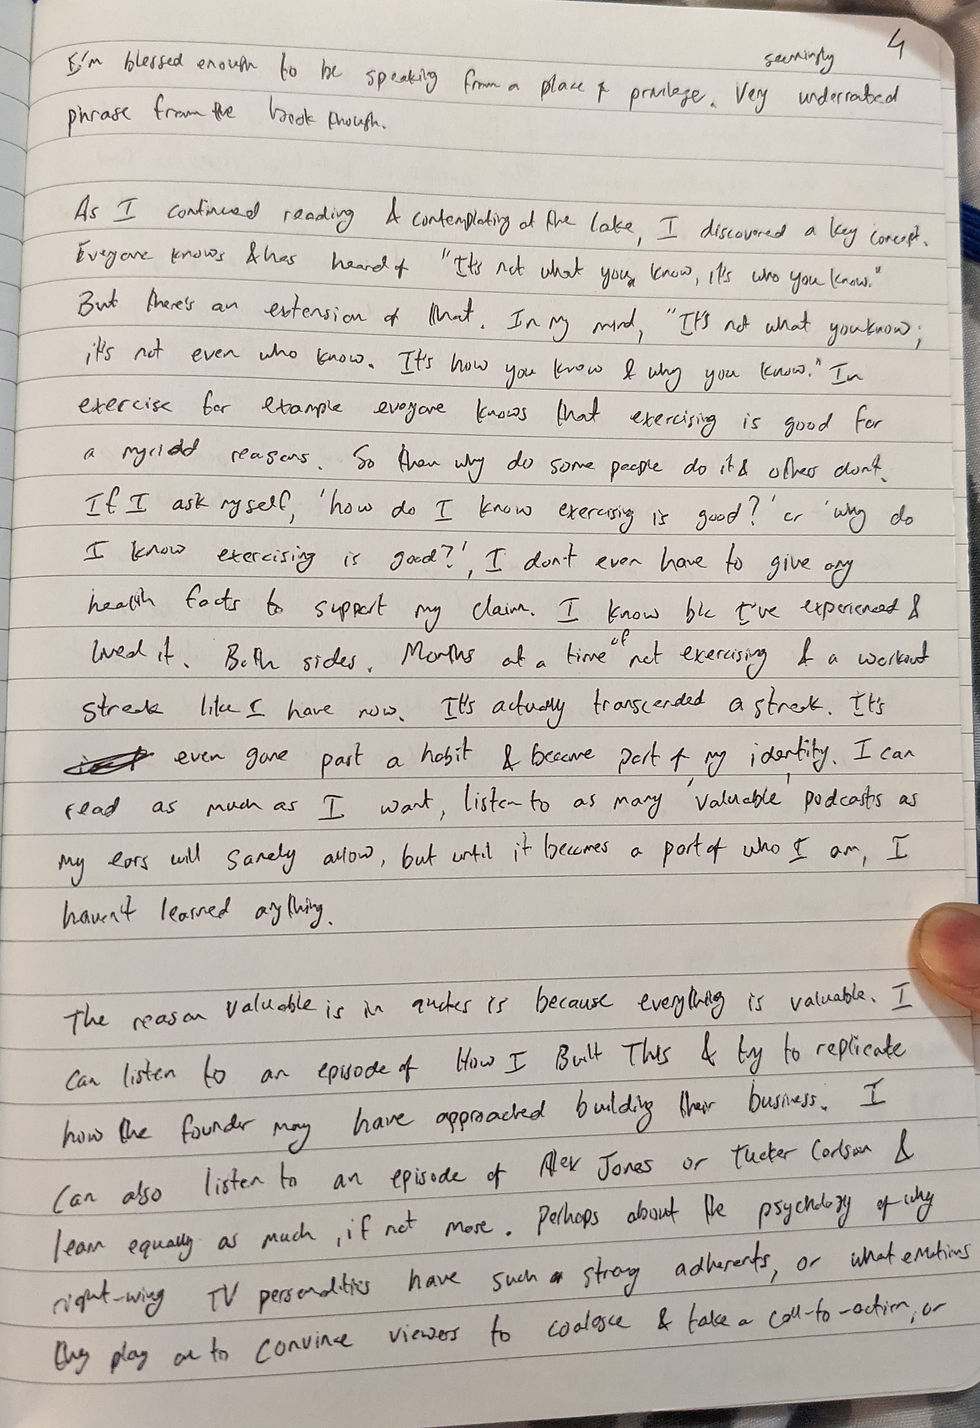 4
seemingly
I'm blessed enough to be speaking from a place of privilege. Very underrated
phrase from the book though.
As I continued reading & contemplating at the lake, I discovered a key concept.
Everyone knows & has heard of "It's not what you know, it's who you know."
But there's an extension of that. In my mind, "It's not what you know;
it's not even who know. It's how you know & why you know." In
exercise for example everyone knows that exercising is good for
a myriad reasons. So then why do some people do it & others dont.
If I ask myself, 'how do I know exercising is good?' or 'why do
I know exercising is good?', I don't even have to give any
health facts to support my claim. I know b/c I've experienced &
lived it. Both sides. Months at a time of not exercising & a workout
streak like I have now. It's actually transcended a streak. It's
even gone past a habit & become part of my identity. I can
read as much as I want, listen to as many 'valuable' podcasts as
my ears will sanely allow, but until it becomes a part of who I am, I
haven't learned anything.
The reason valuable is in quotes is because everything is valuable. I
can listen to an episode of How I Built This & try to replicate
how the founder may have approached building their business. I
can also listen to an episode of Alex Jones or Tucker Carlson &
learn equally as much, if not more. Perhaps about the psychology of why
right-wing TV personalities have such strong adherents, or what emotions
they play on to convince viewers to coalesce & take a call-to-action, or